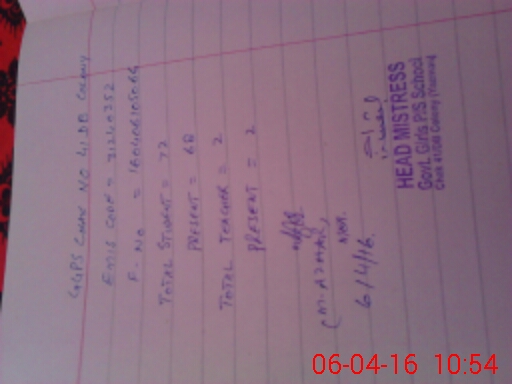 GGPS CHAK NO 41 DB COLONY
EMIS CODE = 31240352
F. NO = 160406105064
TOTAL STUDENT = 72
PRESENT = 68
TOTAL TEACHER = 2
PRESENT = 2
(M. AZMAT)
6/4/16.
HEAD MISTRESS
Govt. Girls P/S School
Chak 41/DB Colony
06-04-16 10:54